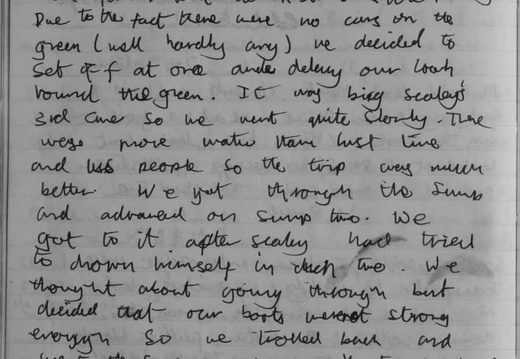 Due to the fact there were no cars on the
green (well hardly any) we decided to
set off at once and delay our look
round the green. It was big sealey's
3rd cave so we went quite slowly. There
was more water than last time
and less people so the trip was much
better. We got through the sump
and advanced on sump two. We
got to it after sealey had tried
to drown himself in duck two. We
thought about going through but
decided that our boots weren't strong
enough so we trolled back and
the